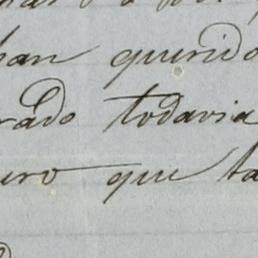 han querido
rado todavia
uro que ta